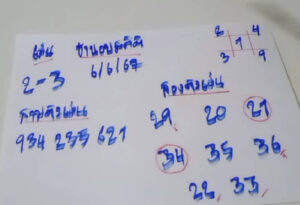 เด่น ชานอนุสติ
2 - 3 6/6/67
2 4
1
3 9
สามตัวเด่น
934 235 621
สองตัวเด่น
29 20 21
34 35 36
22 33